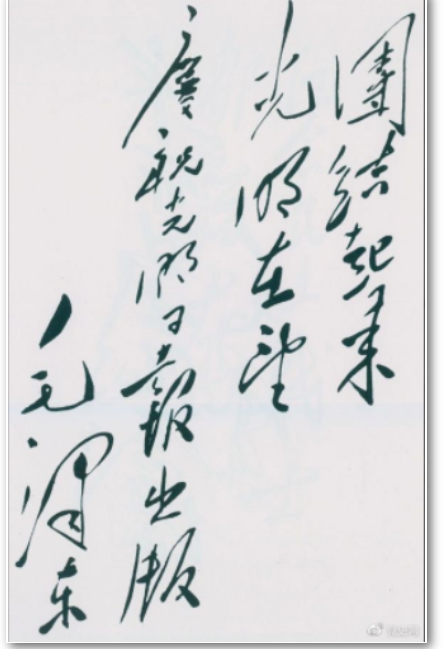 團结起来
光明在望
慶祝光明日報出版
毛澤东